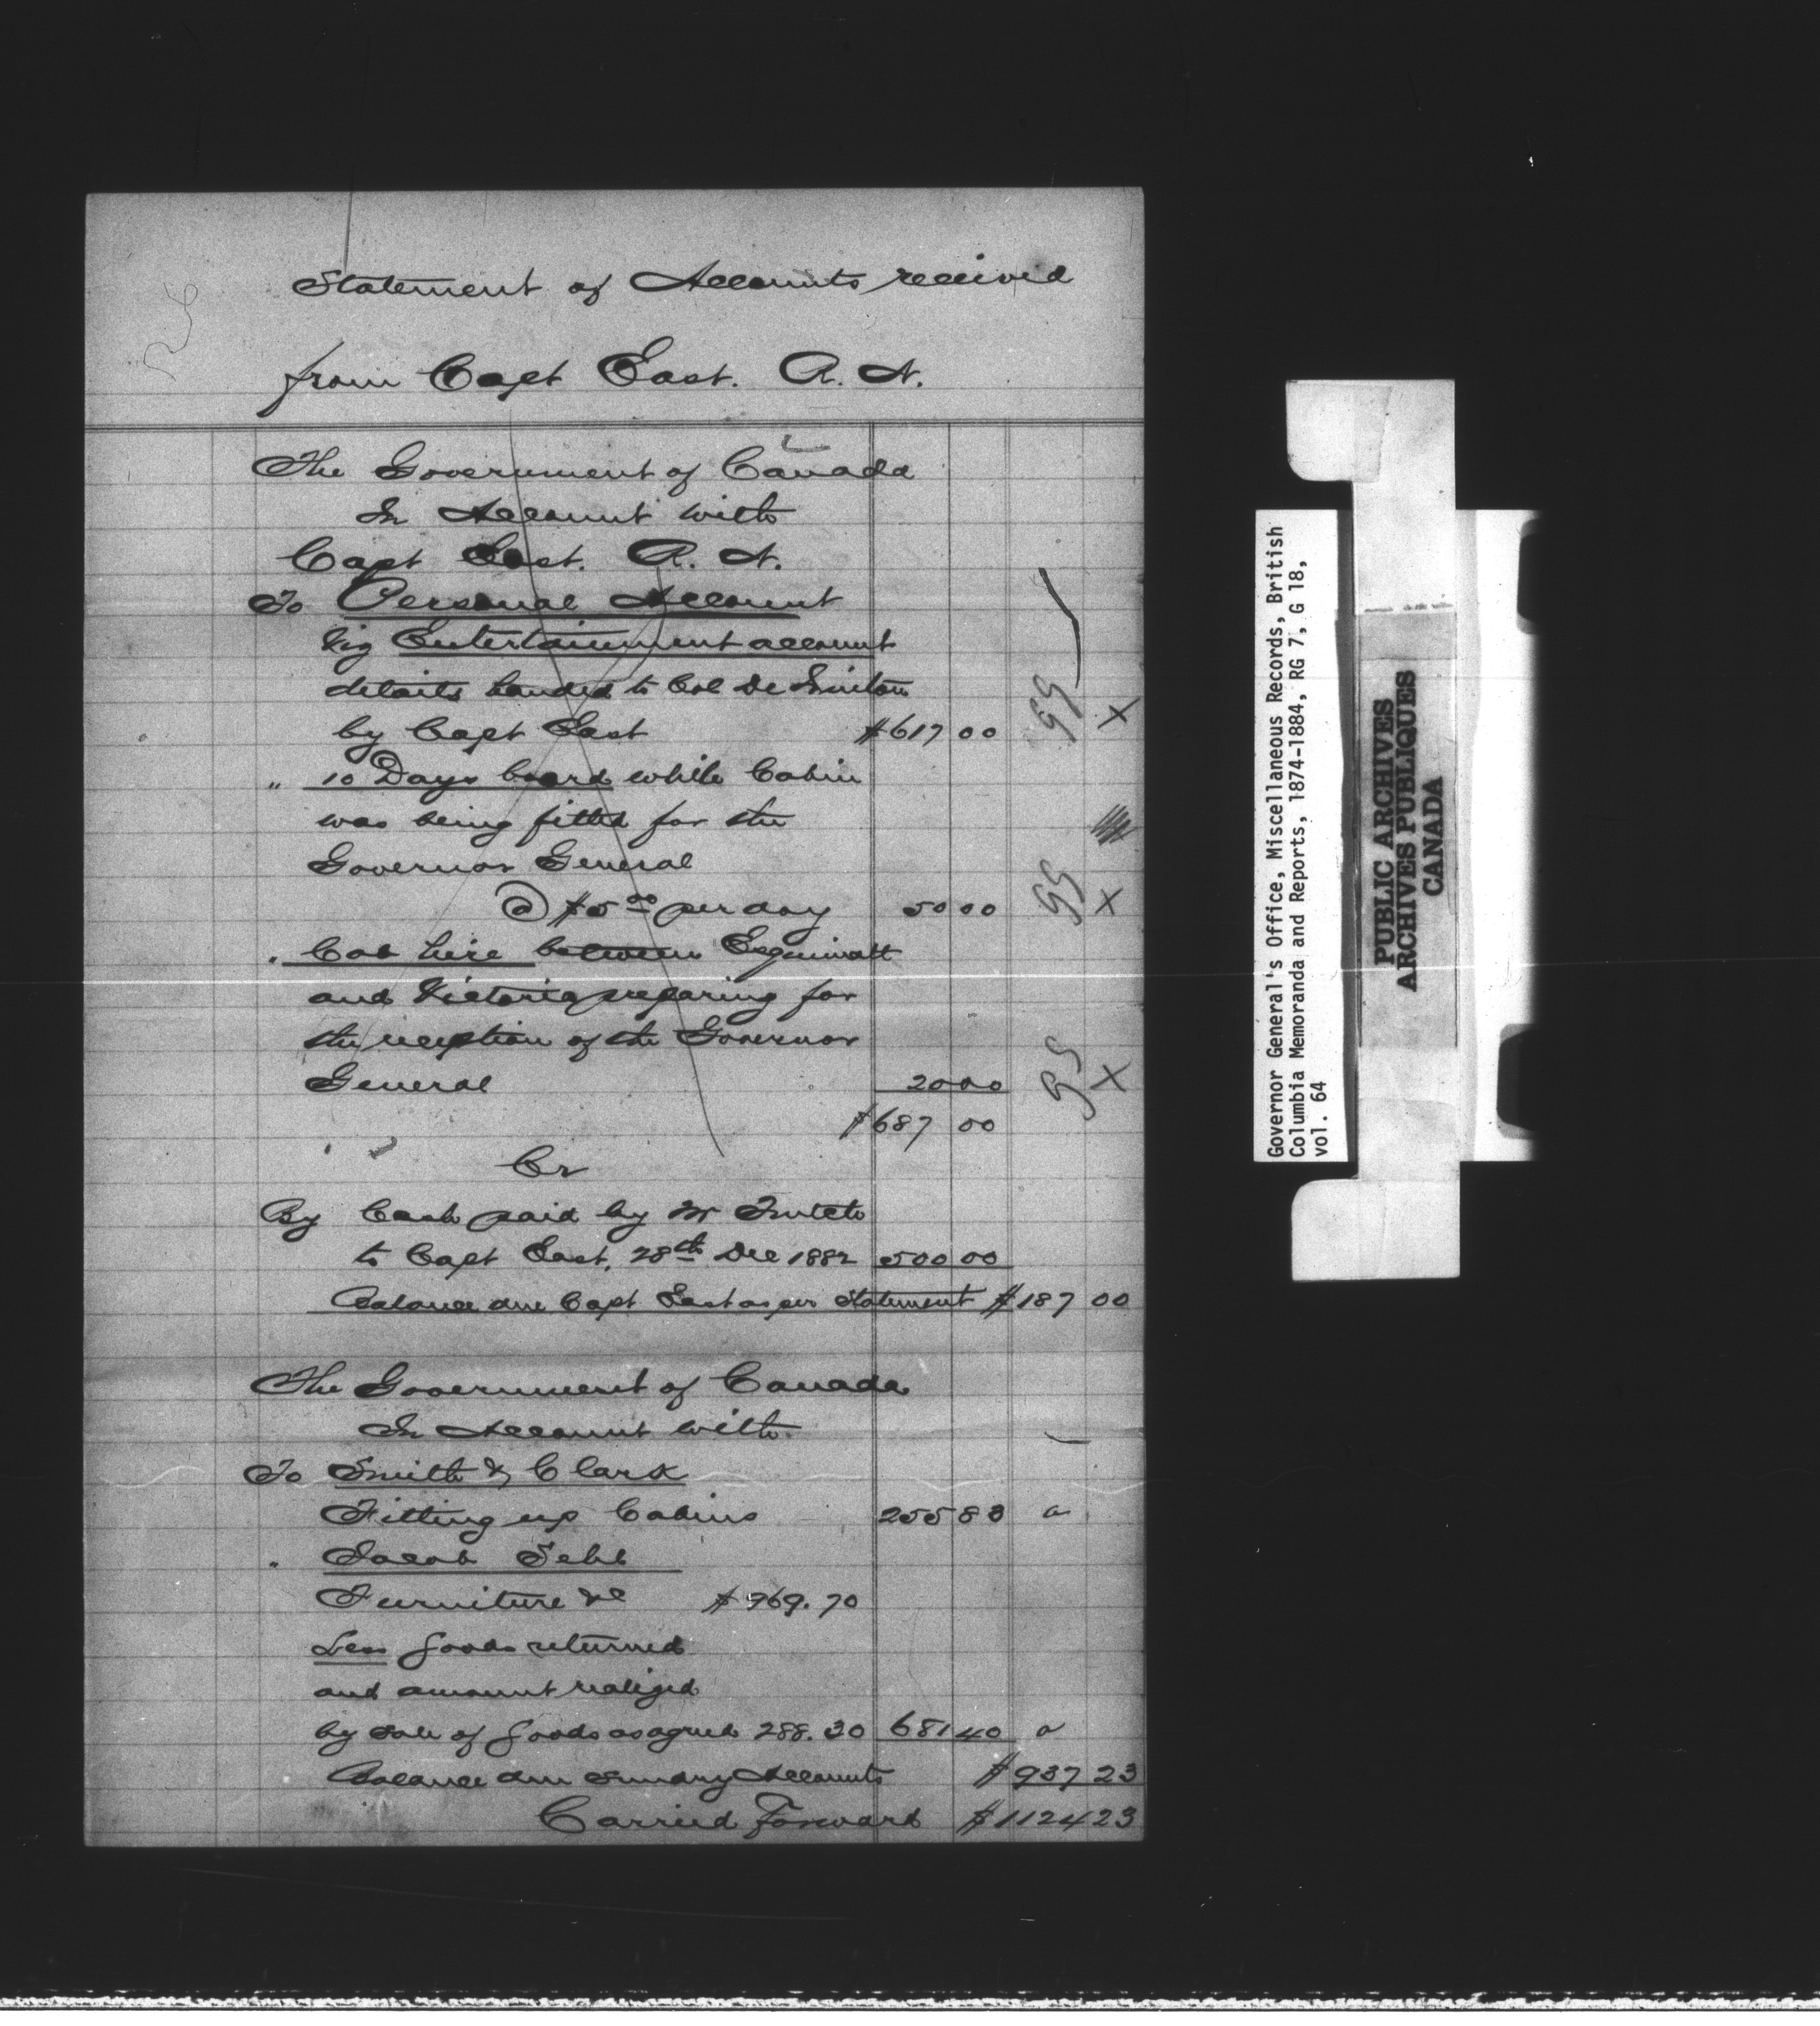 Statement of Accounts received
from Capt East. R. N.
The Government of Canada
In Account with
Capt East. R. N.
To Personal Account
Viz Entertainment account
details handed to Col De Winton
by Capt East $617 00
" 10 Days board while Cabin
was being fitted for the
Governor General
@ $5 00 per day 50 00
" Cab hire between Esquimalt
and Victoria preparing for
the reception of the Governor
General 20 00
$687 00
Cr
By Cash paid by Mr
to Capt East, 28th Dec 1882 500 00
Balance due Capt East as per Statement $187 00
The Government of Canada
In Account with
To Smith & Clark
Fitting up Cabins 255 83 a
" Jacob Sehl
Furniture &c $969.70
Less goods returned
and amount realized
by sale of goods as agreed 288.30 681 40 a
Balance due Sundry Accounts $937 23
Carried Forward $1124 23
Governor General's Office, Miscellaneous Records, British
Columbia Memoranda and Reports, 1874-1884, RG 7, G 18,
vol. 64
PUBLIC ARCHIVES
ARCHIVES PUBLIQUES
CANADA